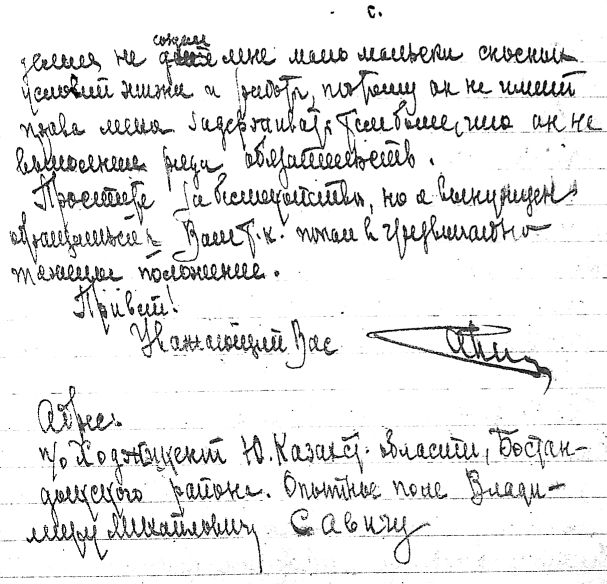 с.
создал
не дал мне мало мальски сносных
условий жизни и работы, потому он не имеет
права меня задерживать. Тем более, что он не
выполнение ряда обязательств.
Простите за беспокойство, но я вынужден
обращаться к Вам т.к. попал в чрезвычайно
тяжелое положение.
Привет!
Уважающий Вас
Адрес
п/о Ходжикент Ю. Казахст. области, Бостан-
дыкского района. Опытное поле Влади-
миру Михайловичу Савичу